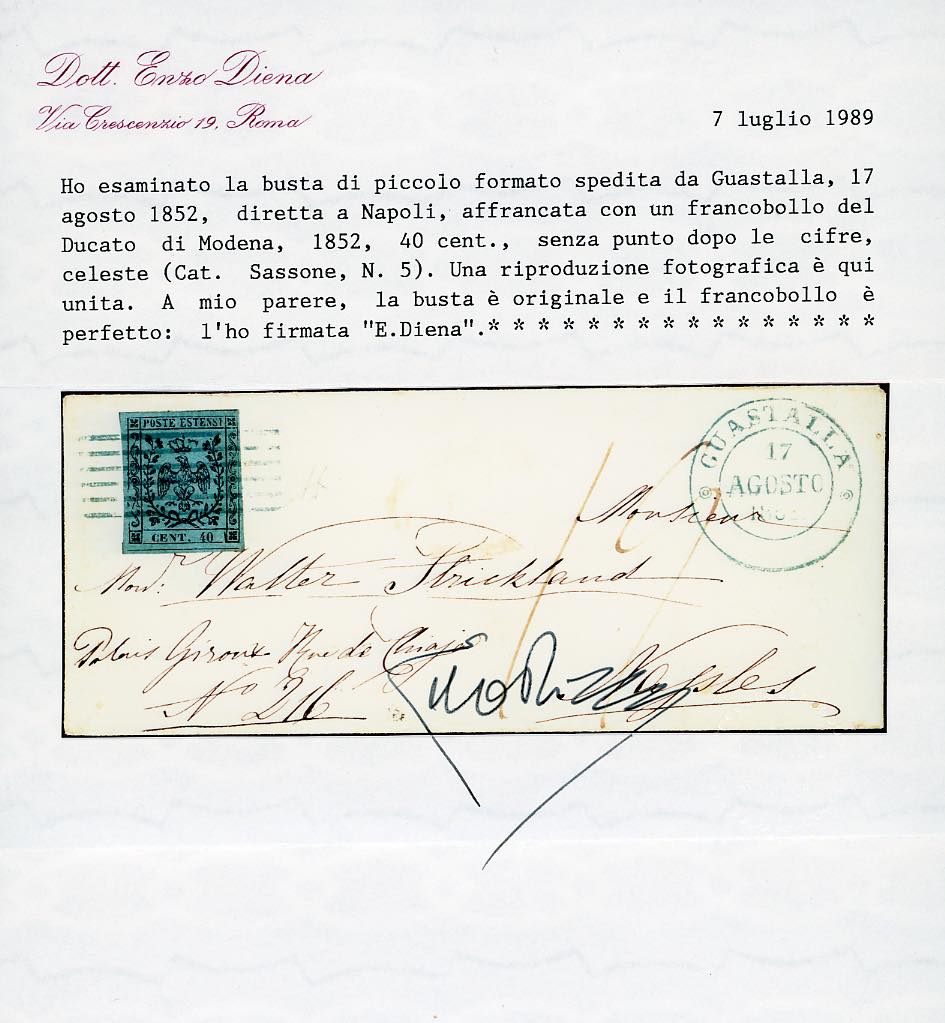 Dott. Enzo Diena
Via Crescenzio 19, Roma
7 luglio 1989
Ho esaminato la busta di piccolo formato spedita da Guastalla, 17
agosto 1852, diretta a Napoli, affrancata con un francobollo del
Ducato di Modena, 1852, 40 cent., senza punto dopo le cifre,
celeste (Cat. Sassone, N. 5). Una riproduzione fotografica è qui
unita. A mio parere, la busta è originale e il francobollo è
perfetto: l'ho firmata "E.Diena".* * * * * * * * * * * * * * * *
POSTE ESTENSI
CENT. 40
GUASTALLA
17
AGOSTO
Monsieur
Monr: Walter Strickland
Palais Giroux Rue de Chiaja
No 216
Naples